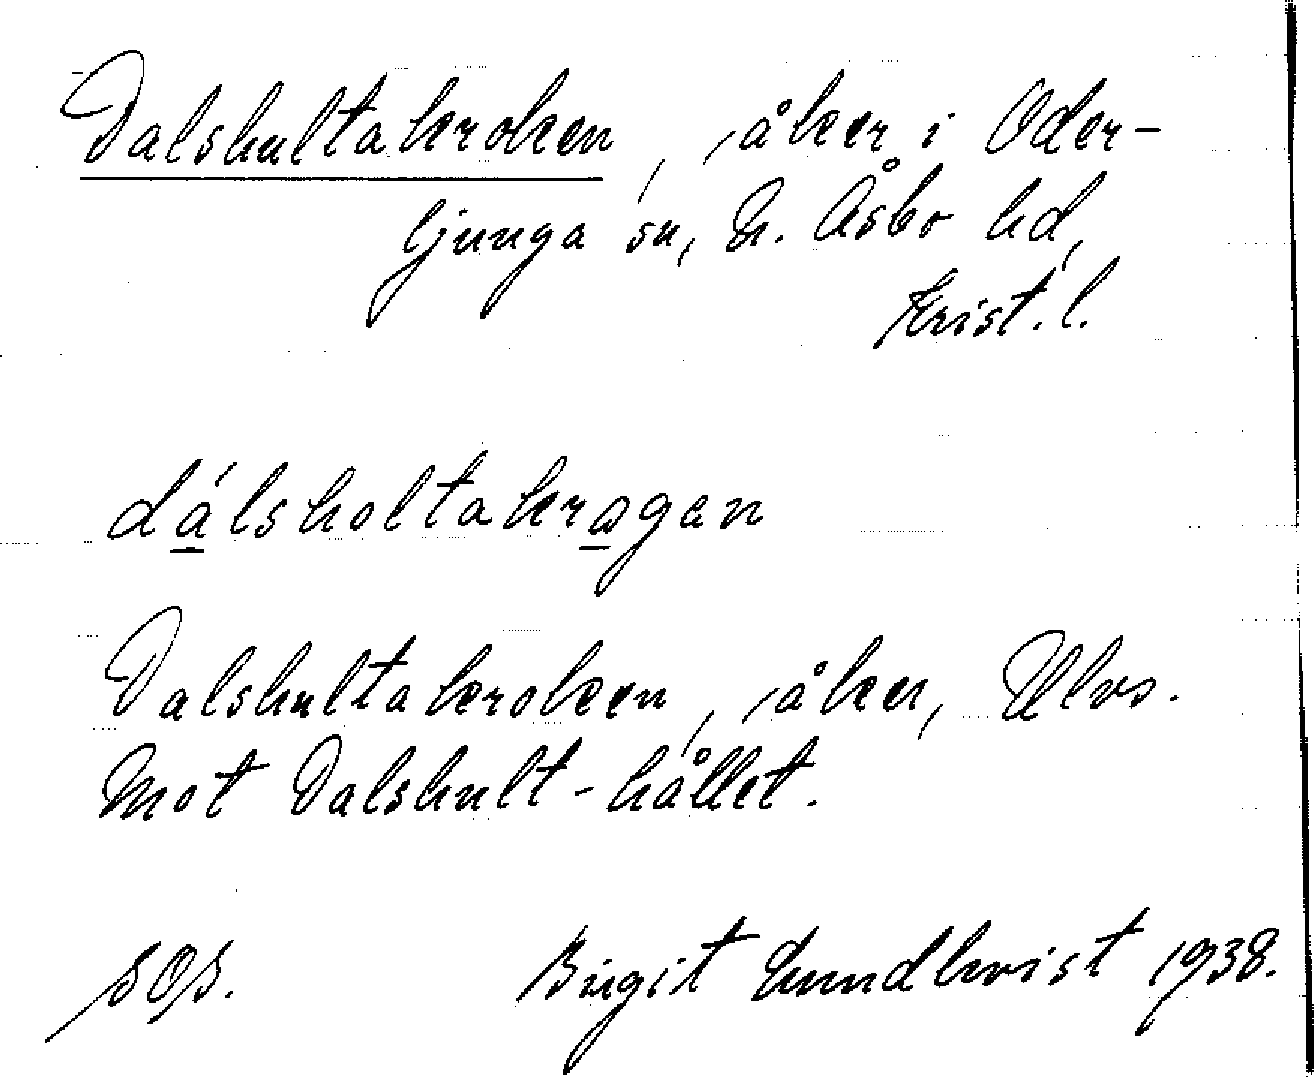 Dalshultakroken, åker i Oder-
ljunga sn, N. Åsbo hd,
Krist. l.
dálsholtakragan
Dalshultakroken, åker, Ulvs.
Mot Dalshult-hållet.
SOS.
Birgit Lundkvist 1938.